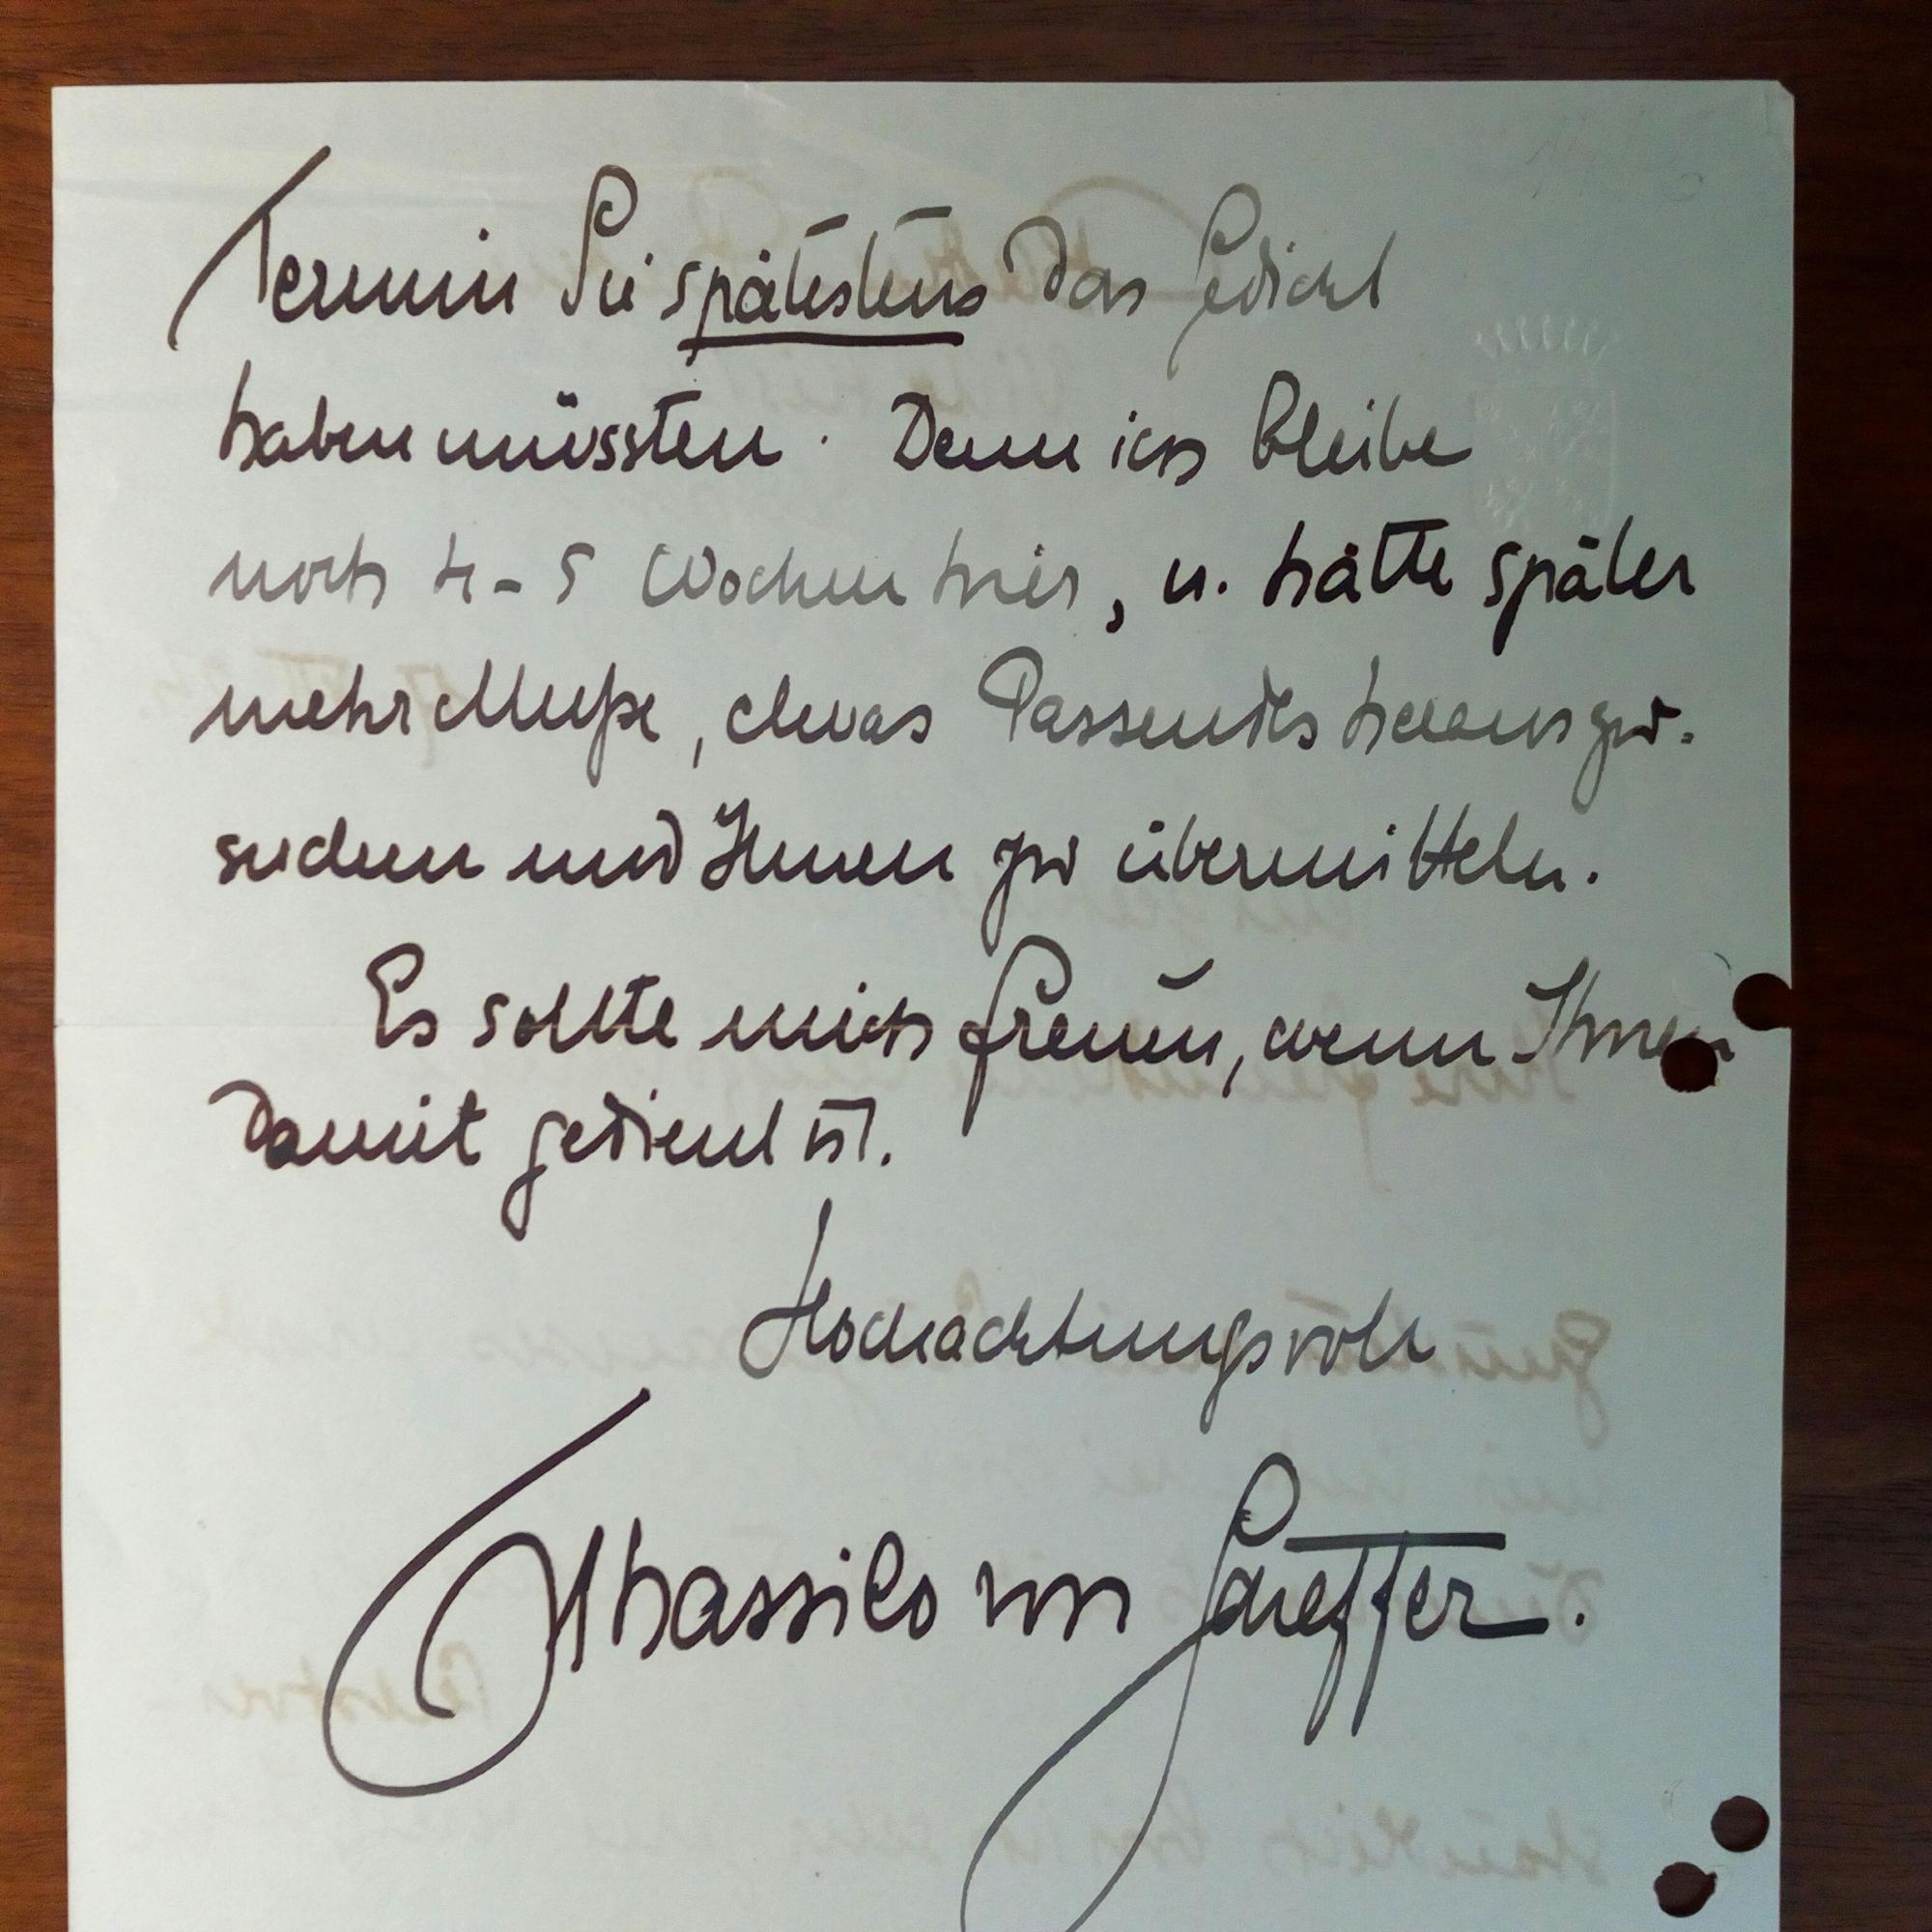 Termin Sie spätestens das Gedicht
haben müssten. Denn ich bleibe
noch 4-5 Wochen hier, u. hätte später
mehr Muße, etwas Passendes herauszu-
suchen und Ihnen zu übermitteln.
Es sollte mich freuen, wenn Ihnen
damit gedient ist.
Hochachtungsvoll
Thassilo von Scheffer.